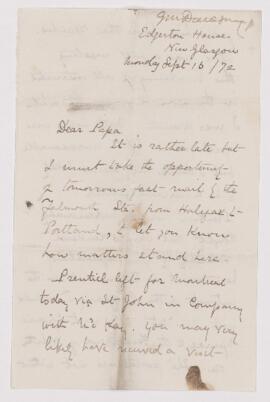 GM Dawson
Edgerton House
New Glasgow
Monday Sept 16/72
Dear Papa
It is rather late but
I must take the opportunity
of tomorrows fast mail & the
Falmouth Str. from Halifax to
Portland, to let you know
how matters stand here.
Prentice left for Montreal
today via St John in Company
with Mc Kay. You may very
likely have received a visit